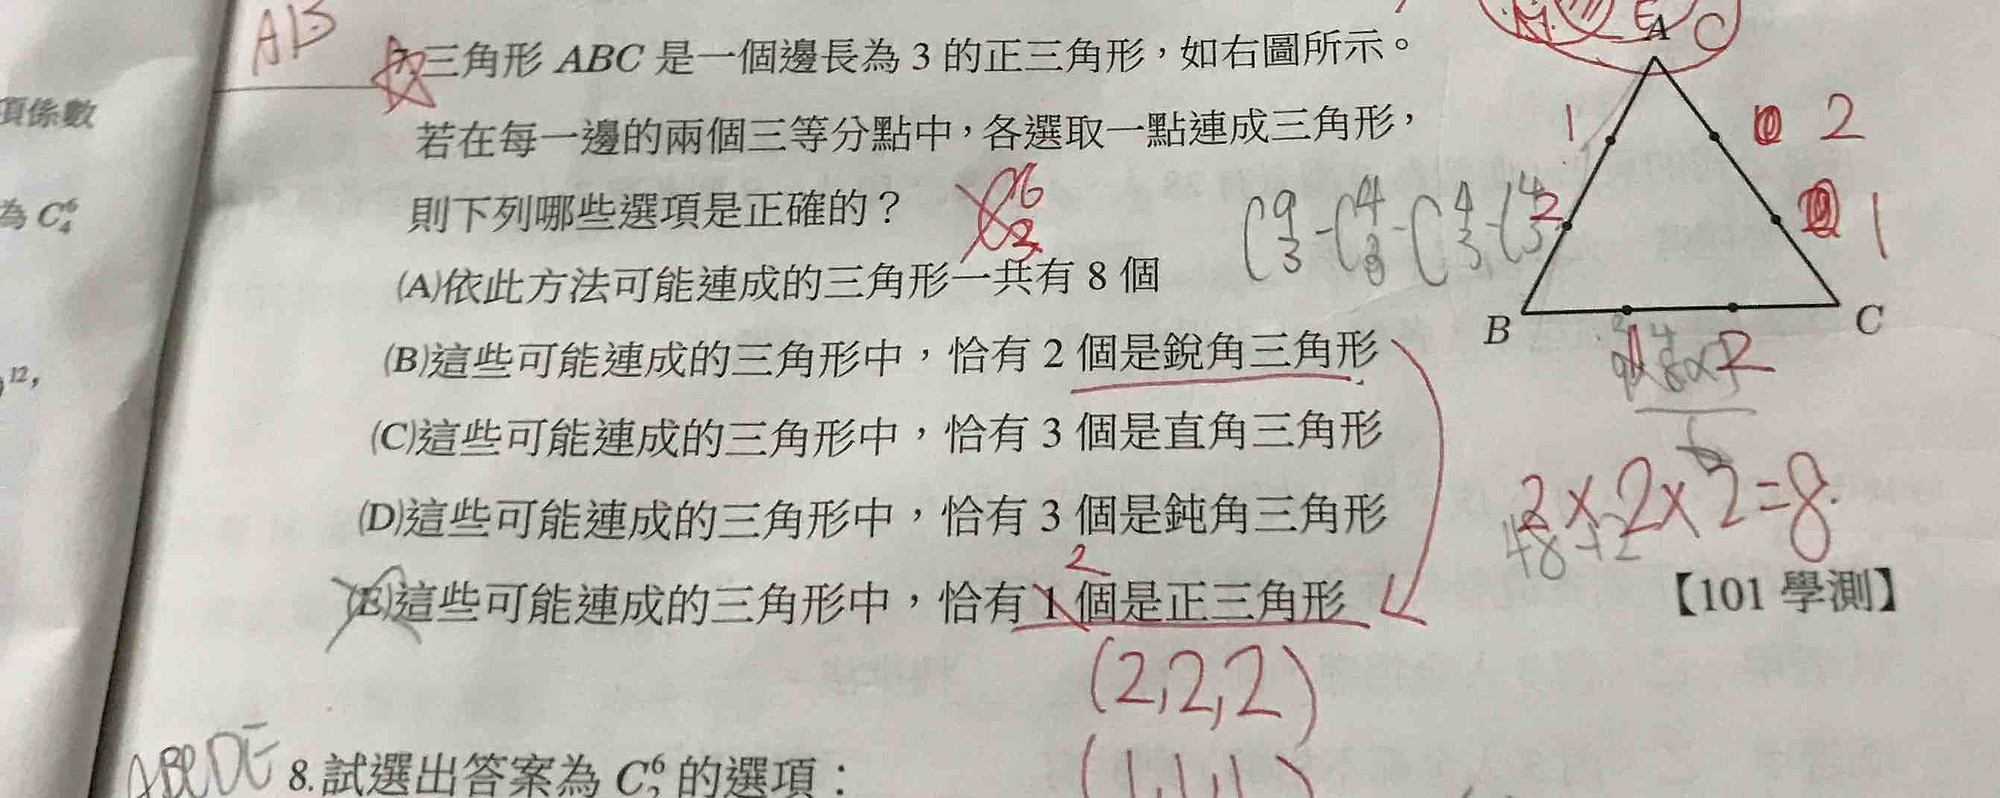 AB
三角形 ABC 是一個邊長為 3 的正三角形，如右圖所示。
若在每一邊的兩個三等分點中，各選取一點連成三角形，
則下列哪些選項是正確的？
(A)依此方法可能連成的三角形一共有 8 個
(B)這些可能連成的三角形中，恰有 2 個是銳角三角形
(C)這些可能連成的三角形中，恰有 3 個是直角三角形
(D)這些可能連成的三角形中，恰有 3 個是鈍角三角形
2
(E)這些可能連成的三角形中，恰有 1 個是正三角形
(2,2,2)
(1,1,1)
A
C
1
2
2
1
B
C
1
2
2×2×2=8
48÷2
【101 學測】
項係數
為 C₄⁶
12,
ABCDE
8.試選出答案為 C₂⁶ 的選項：